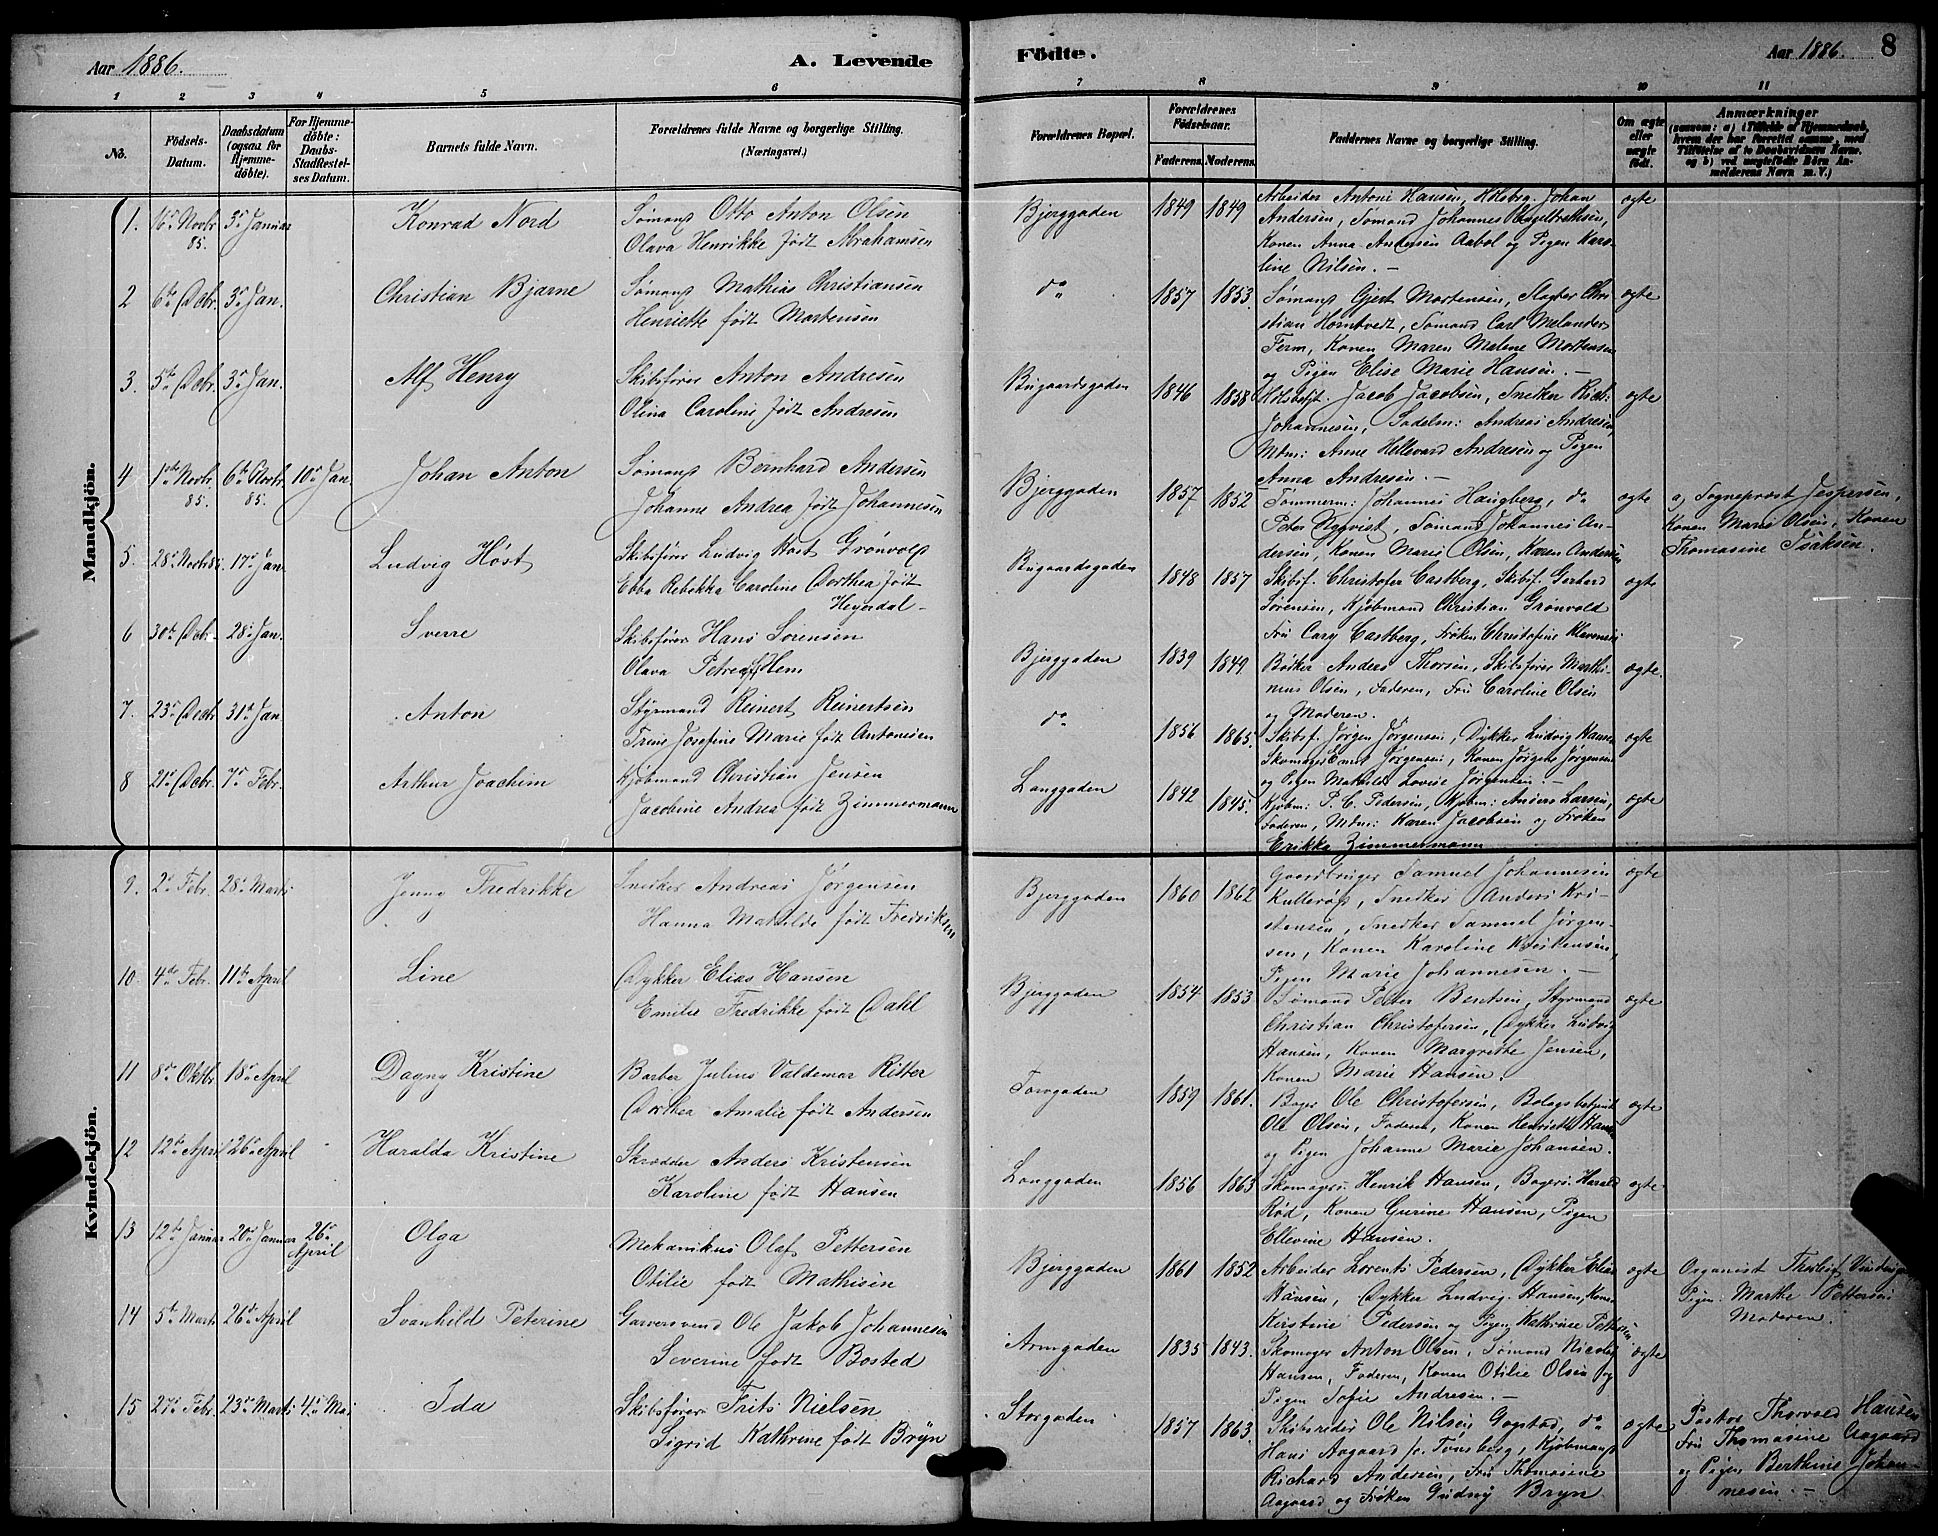 Aar 1886.
A. Levende
Födte.
Aar 1886.
8
1 2 3 4 5 6
7 8 9 10 11
No.
Födsels-Datum.
Daabsdatum (ogsaa for Hjemme-döbte).
For Hjemme-döbte: Daabs-Stadfæstel-ses Datum.
Barnets fulde Navn.
Forældrenes fulde Navne og borgerlige Stilling. (Næringsvei.)
Forældrenes Bopæl.
Forældrenes Födselsaar.
Faderens. Moderens.
Faddernes Navne og borgerlige Stilling.
Om ægte eller uægte födt.
Anmærkninger
Mandkjön.
1. 16d Novbr 85. 3d Januar Konrad Nord Sømand Otto Anton Olsen
Olava Henrikke født Abrahamsen
Bjerggaden 1849 1849 Arbeider Antoni Hansen, Johan
Andersen, Sømand Johannes Engelbrektsen,
Konen Anna Andersen Aabol og Pigen Karo-
line Nilsen. –
ægte
2 6te Dcbr. 3d Jan. Christian Bjarne Sømand Mathias Christiansen
Henriette født Martensen
do 1857 1853. Sømand Gjert Mortensen, Slagter Chri-
stian Horntvedt, Sømand Carl Melander
Ferm, Konen Maren Malene Mortensen
og Pigen Elise Marie Hansen. –
ægte
3. 5te Dcbr. 3d Jan. Alf Henry Skibsfører Anton Andresen
Olina Caroline født Andresen
Bugaardsgaden 1846 1858 Jacob Jacobsen, Snedker Rich:
Johannesen, Sadelm: Andreas Andresen,
Mdm: Anne Hellevard Andresen og Pigen
Anna Andresen. –
ægte
4 1ste Novbr. 85. 6te Novbr. 85. 10d Jan. Johan Anton Sømand Bernhard Andersen
Johanne Andrea født Johannesen
Bjerggaden 1857 1852 Tømmerm: Johannes Haugberg, do
Peter Sømand Johannes An-
dersen, Konen Marie Olsen, Karen Andersen
ægte
a, Sogneprest Jespersen,
Konen Marie Olsen, Konen
Thomasine Isaksen.
5. 28d Novbr 85. 17d Jan. Ludvig Høst Skibsfører Ludvig Høst Grønvold
Ebba Rebekka Caroline Dorthea født
Heyerdal –
Bugaardsgaden 1848 1857 Skibsf. Christofer Castberg, Skibsf. Gerhard
Sørensen, Kjøbmand Christian Grønvold
Fru Cary Castberg, Frøken Christofine
ægte
6 30te Dcbr. 28d Jan. Sverre Skibsfører Hans Sørensen
Olava Petrea f. Hem
Bjerggaden 1839 1849. Bødker Anders Thorsen, Skibsfører Marthi-
nius Olsen, Faderen, Fru Caroline Olsen
og Moderen.
ægte.
7. 23d Dcbr 31te Jan. Anton Styrmand Reinert Reinertsen
Trine Josefine Marie født Antonisen
do 1856 1865. Skibsf. Jørgen Jørgensen, Dykker Ludvig Hansen
Skomager Ernst Jørgensen, Konen Jørgete Jørgensen
og Pigen Mathilde Lovise Jørgensen. –
ægte
8 21d Dcbr. 7d Febr. Arthur Joachim Kjøbmand Christian Jensen
Jacobine Andrea født Zimmermann
Langgaden 1842 1845. Kjøbm: P. C. Pedersen, Kjøbm: Anders Larsen,
Faderen, Mdm: Karen Jacobsen og Frøken
Erikka Zimmermann
ægte
Kvindekjön.
9. 2d Febr. 28d Marts Jenny Fredrikke Snedker Andreas Jørgensen
Hanna Mathilde født Fredriksen
Bjerggaden 1860 1862 Gaardbruger Samuel Johannesen
Kullerød, Snedker Anders Kri-
stensen, Snedker Samuel Jørgen-
sen, Konen Karoline Kristensen,
Pigen Marie Johannesen. –
ægte
10. 4de Febr. 11te April Line Dykker Elias Hansen
Emilie Fredrikke født Dahl
Bjerggaden 1854 1853 Sømand Peter Bentsen, Styrmand
Christian Christofersen, Dykker Ludvig
Hansen, Konen Margrethe Jensen,
Konen Marie Hansen.
ægte
11 8de Oktbr. 18d April Dagny Kristine Barber Julius Valdemar Ritter
Dorthea Amalie født Andersen
Torvgaden 1859 1861. Bager Ole Christofersen, Bolagsbetjent
Ole Olsen, Faderen, Konen Henriette Hansen
og Pigen Johanne Marie Johansen.
ægte
12 12te April 26d April Haralda Kristine Skrædder Anders Kristensen
Karoline født Hansen
Langgaden 1856 1863 Skomagers. Henrik Hansen, Bagers: Harald
Rød, Konen Gurine Hansen, Pigen
Ellevine Hansen.
ægte
13 12te Januar 20d Januar 26d April Olga Mekanikus Olaf Pettersen
Otilie født Mathisen
Bjerggaden 1861 1852 Arbeider Lorents Pedersen, Dykker Elias
Hansen, Dykker Ludvig Hansen, Konen
Kirstine Pedersen og Pigen Kathrine Pettersen.
ægte
Organist Thorleif
Pigen Marthe Pettersen
Moderen.
14 5te Marts 26de April Svanhild Peterine Garversvend Ole Jakob Johannesen
Severine født Bosted
1835 1843. Skomager Anton Olsen, Sømand Nicolay
Hansen, Faderen, Konen Otilie Olsen og
Pigen Sofie Andresen. –
ægte
15 27d Febr. 23d Marts 4d Mai Ida Skibsfører Frits Nielsen
Sigrid Kathrine født Bryn
Storgaden 1857 1863. Skibsreder Ole Nilsen Gogstad, do
Hans Aagaard fr. Tønsberg, Kjøbmand
Richard Andersen, Fru Thomasine
Aagaard og Frøken Gudny Bryn
ægte
Pastor Thorvald Hansen
Fru Thomasine Aagaard
og Pigen Berthine Johan-
nesen. –